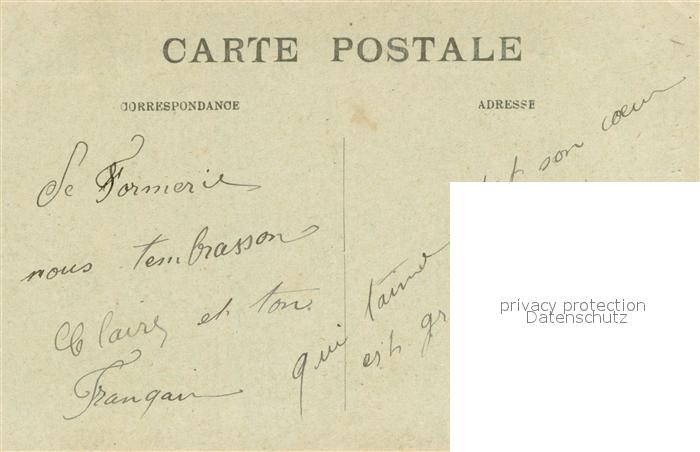 CARTE POSTALE
CORRESPONDANCE
ADRESSE
De Formerie
nous tembrasson
Claire et ton
Françain
son cœur
qui taime
est gr
privacy protection
Datenschutz